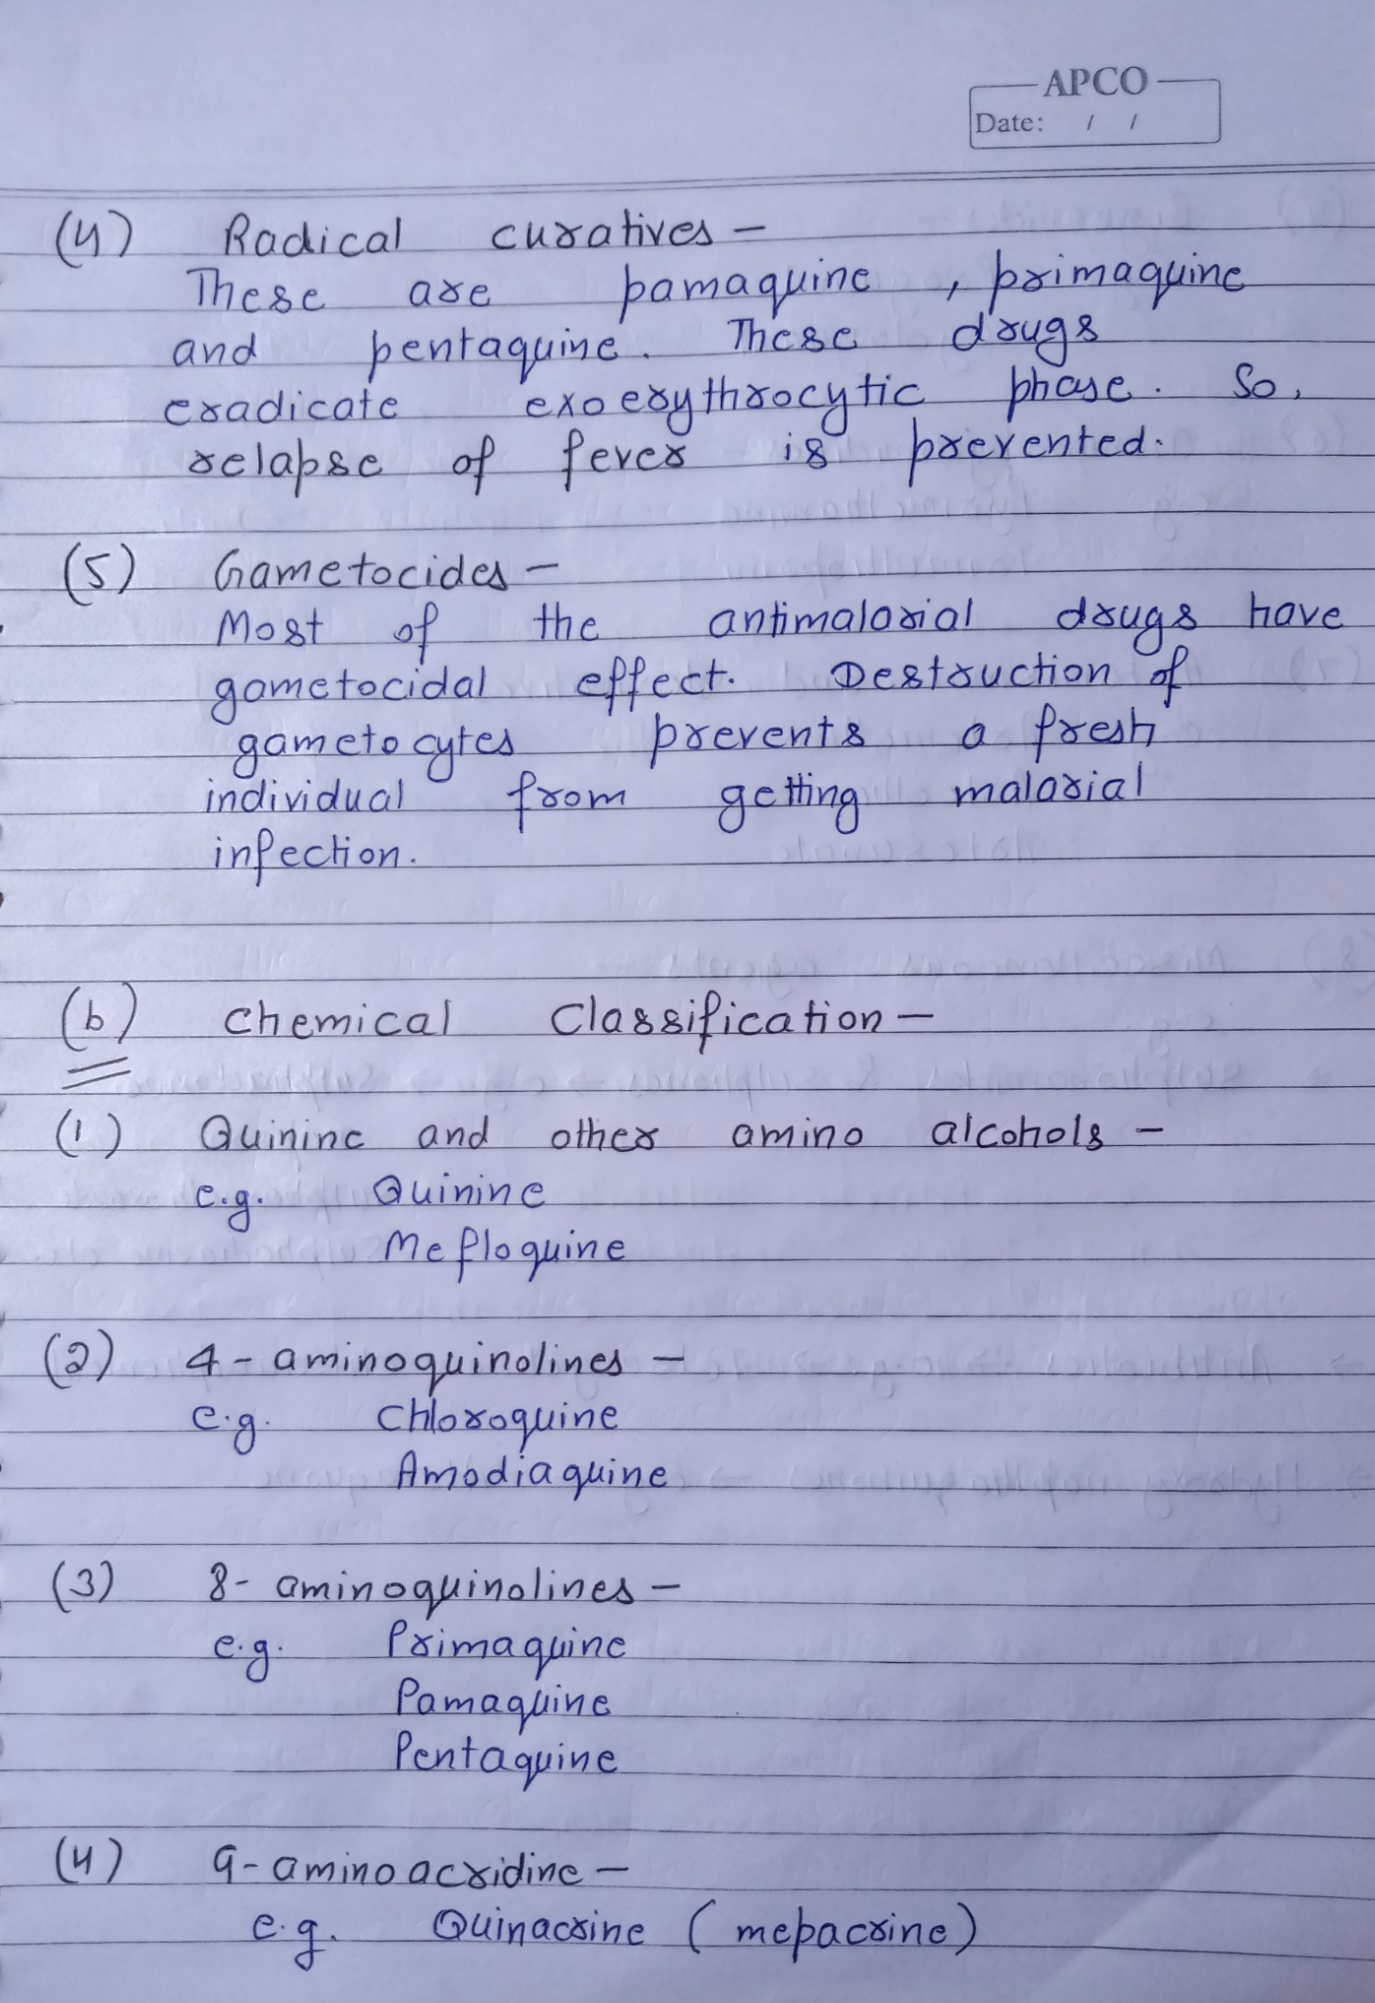 APCO
Date: / /
(4) Radical curatives -
These are pamaquine, primaquine
and pentaquine. These drugs
eradicate exoerythrocytic phase. So,
relapse of fever is prevented.
(5) Gametocides -
Most of the antimalarial drugs have
gametocidal effect. Destruction of
gametocytes prevents a fresh
individual from getting malarial
infection.
(b) Chemical Classification -
(1) Quinine and other amino alcohols -
e.g. Quinine
Mefloquine
(2) 4-aminoquinolines -
e.g. Chloroquine
Amodiaquine
(3) 8-aminoquinolines -
e.g. Primaquine
Pamaquine
Pentaquine
(4) 9-aminoacridine -
e.g. Quinacrine (mepacrine)